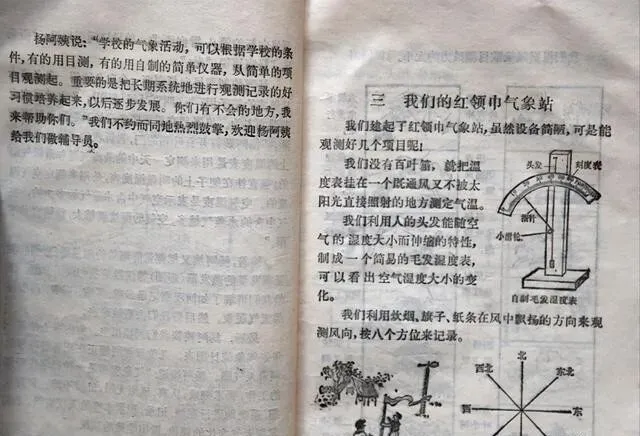 杨阿姨说：“学校的气象活动，可以根据学校的条
件，有的用目测，有的用自制的简单仪器，从简单的项
目观测起。重要的是把长期系统地进行观测记录的好
习惯培养起来，以后逐步发展。你们有不会的地方，我
来帮助你们。”我们不约而同地热烈鼓掌，欢迎杨阿姨
给我们做辅导员。
三 我们的红领巾气象站
我们建起了红领巾气象站，虽然设备简陋，可是能
观测好几个项目呢！
我们没有百叶箱，就把温
度表挂在一个既通风又不被太
阳光直接照射的地方测定气温。
我们利用人的头发能随空
气的湿度大小而伸缩的特性，
制成一个简易的毛发湿度表，
可以看出空气湿度大小的变
化。
头发
刻度表
指针
小滑轮
自制毛发湿度表
我们利用炊烟、旗子、纸条在风中飘扬的方向来观
测风向，按八个方位来记录。
北
西北
东北
西
东